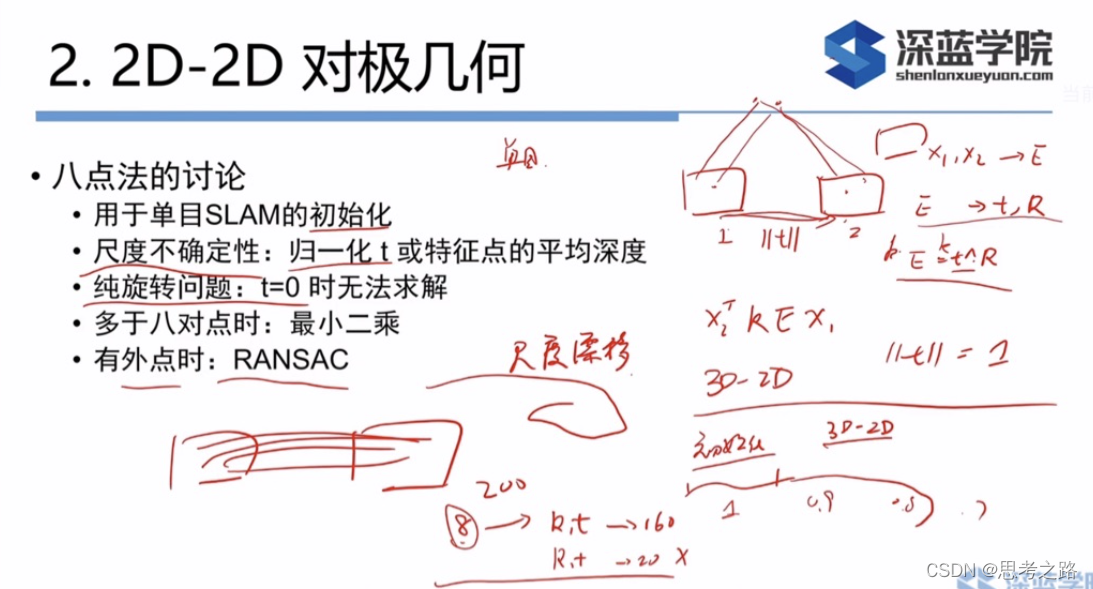 2. 2D-2D 对极几何
深蓝学院
shenlanxueyuan.com
单目.
• 八点法的讨论
• 用于单目SLAM的初始化
• 尺度不确定性：归一化 t 或特征点的平均深度
• 纯旋转问题：t=0 时无法求解
• 多于八对点时：最小二乘
• 有外点时：RANSAC
x₁,x₂ → E
E → t,R
1 ||t|| 2
E = t^R
x₂ᵀ k E x₁
||t|| = 1
3D-2D
尺度漂移
初始化
3D-2D
1 0.9 0.8
200
8 → R,t → 160
R,t → 20 X
CSDN @思考之路